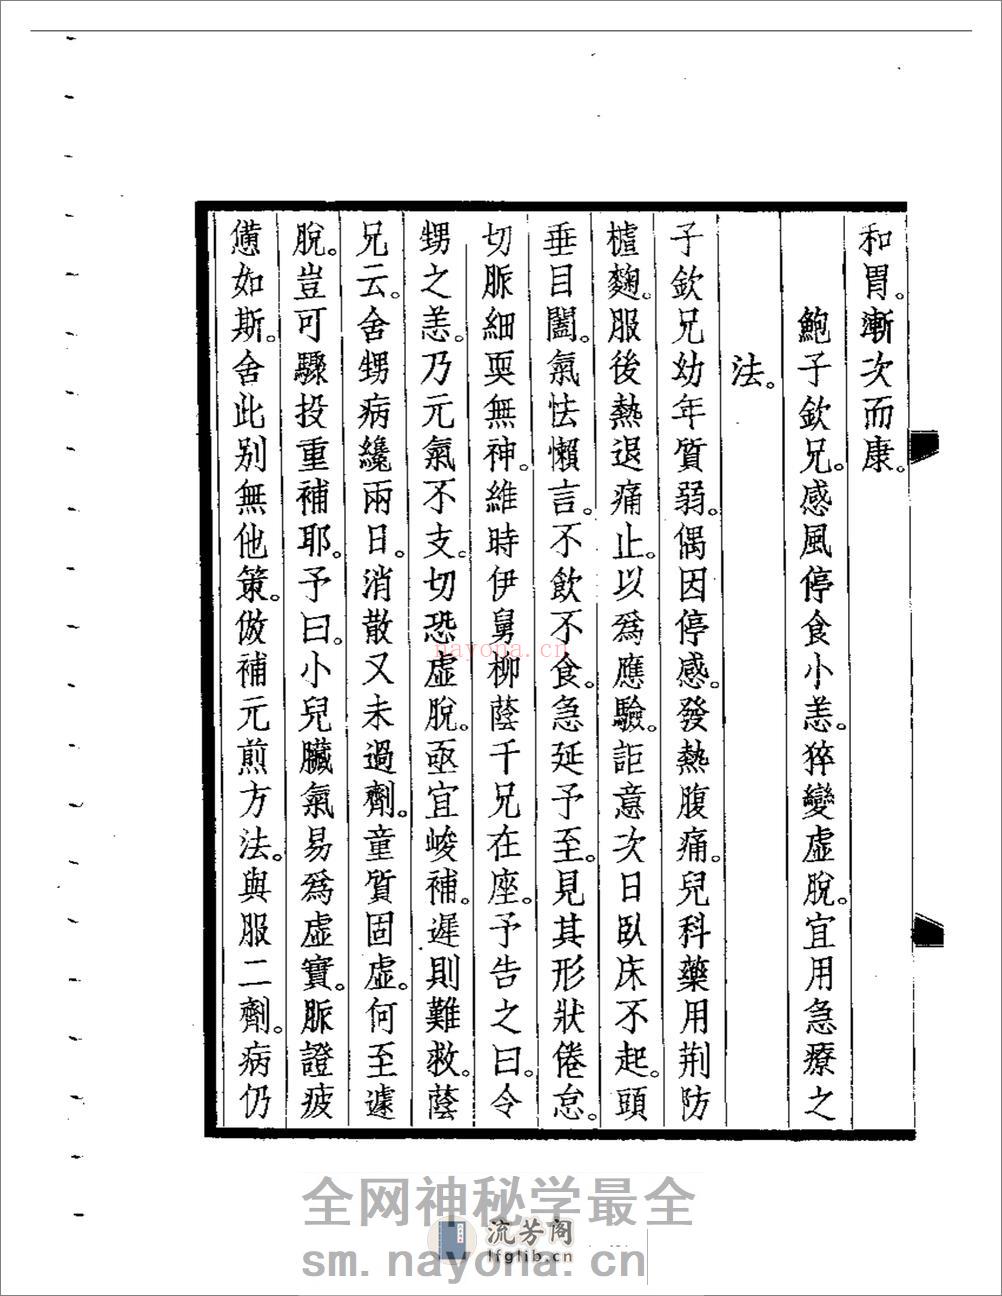 和胃。漸次而康。
鮑子欽兄。感風停食小恙。猝變虛脫。宜用急療之
法。
子欽兄幼年質弱。偶因停感。發熱腹痛。兒科藥用荆防
樝麴。服後熱退痛止。以爲應驗。詎意次日臥床不起。頭
垂目闔。氣怯懶言。不飲不食。急延予至。見其形狀倦怠。
切脈細耎無神。維時伊舅柳蔭千兄在座。予告之曰。令
甥之恙。乃元氣不支。切恐虛脫。亟宜峻補。遲則難救。蔭
兄云。舍甥病纔兩日。消散又未過劑。童質固虛。何至遽
脫。豈可驟投重補耶。予曰。小兒臟氣易爲虛實。脈證疲
憊如斯。舍此别無他策。倣補元煎方法。與服二劑。病仍
nayona.cn
全网神秘学最全
流芳阁
lfglib.cn
sm.nayona.cn